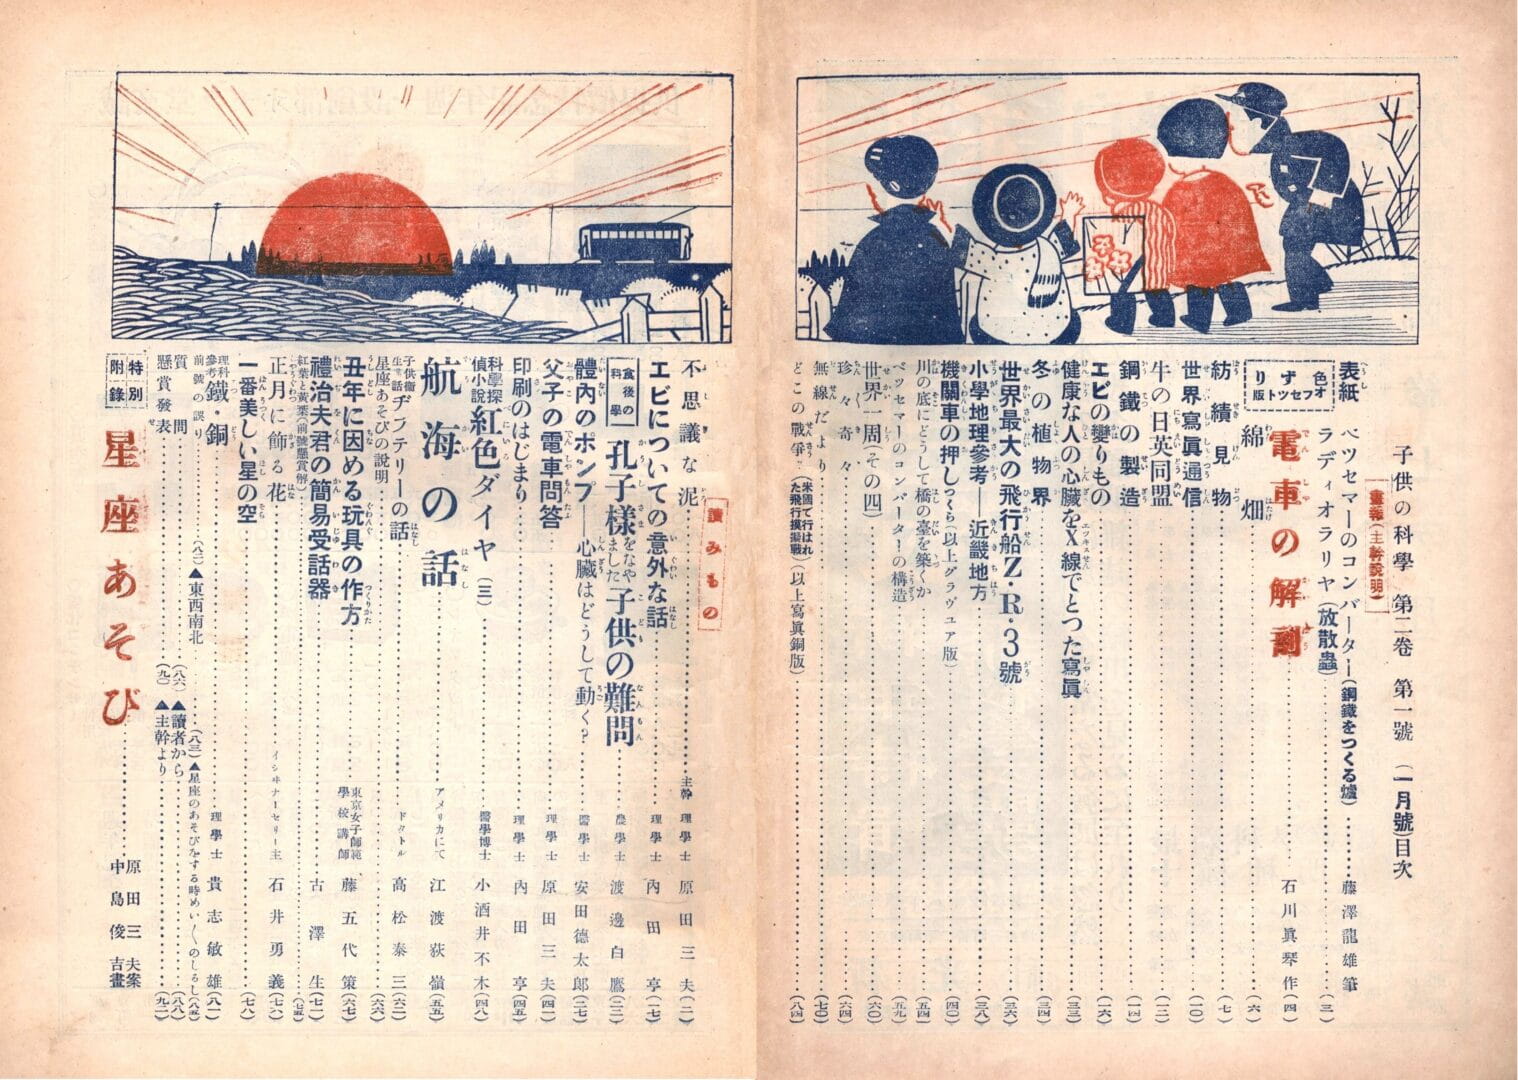 子供の科學 第二卷 第一號 (一月號)目次
畫報(主幹説明)
表紙 ベッセマーのコンバーター(鋼鐵をつくる爐) 藤澤龍雄筆
色ずり オフセット版
ラディオラリヤ(放散蟲) (三)
電車の解剖 石川眞琴作 (四)
綿畑 (六)
紡績見物 (七)
世界寫眞通信 (一〇)
牛の日英同盟 (一二)
鋼鐵の製造 (一四)
エビの變りもの (一六)
健康な人の心臓をX線でとつた寫眞 (三三)
冬の植物界 (三四)
世界最大の飛行船Z・R・3號 (三六)
小學地理參考―近畿地方 (三八)
機關車の押しつくら(以上グラヴユア版) (四〇)
川の底にどうして橋の臺を築くか (五四)
ベッセマーのコンバーターの構造 (五九)
世界一周(その四) (六〇)
珍々奇々 (六四)
無線だより (七〇)
どこの戰爭?(米國で行はれた飛行摸擬戰)(以上寫眞銅版) (八四)
讀みもの
不思議な泥 主幹 理學士 原田三夫 (二)
エビについての意外な話 理學士 內田亨 (一七)
食後の科學 孔子樣をなやました子供の難問 農學士 渡邊白鷹 (二二)
體內のポンプ―心臓はどうして動く? 醫學士 安田德太郎 (二七)
父子の電車問答 理學士 原田三夫 (四一)
印刷のはじまり 理學士 內田亨 (四五)
科學探偵小說 紅色ダイヤ(三) 醫學博士 小酒井不木 (四八)
航海の話 アメリカにて 江渡荻嶺 (五五)
子供衞生講話 ヂフテリーの話 ドクトル 高松泰三 (六二)
星座あそびの説明 (六六)
丑年に因める玩具の作方 東京女子師範學校講師 藤五代策 (六七)
禮治夫君の簡易受話器 古澤生 (七一)
紅葉と黃葉(前號懸賞解) (七五)
正月に飾る花 イシヰナーセリー主 石井勇義 (七六)
一番美しい星の空 (七八)
理科參考 鐵・銅 理學士 貴志敏雄 (八一)
前號の誤り (八二)▲東西南北 (八三)▲星座のあそびをする時めい〱のしるし (八五)
質問 (八六)▲讀者から (八八)
懸賞發表 (九〇)▲主幹より (九二)
特別附錄 星座あそび 原田三夫案 中島俊吉畫